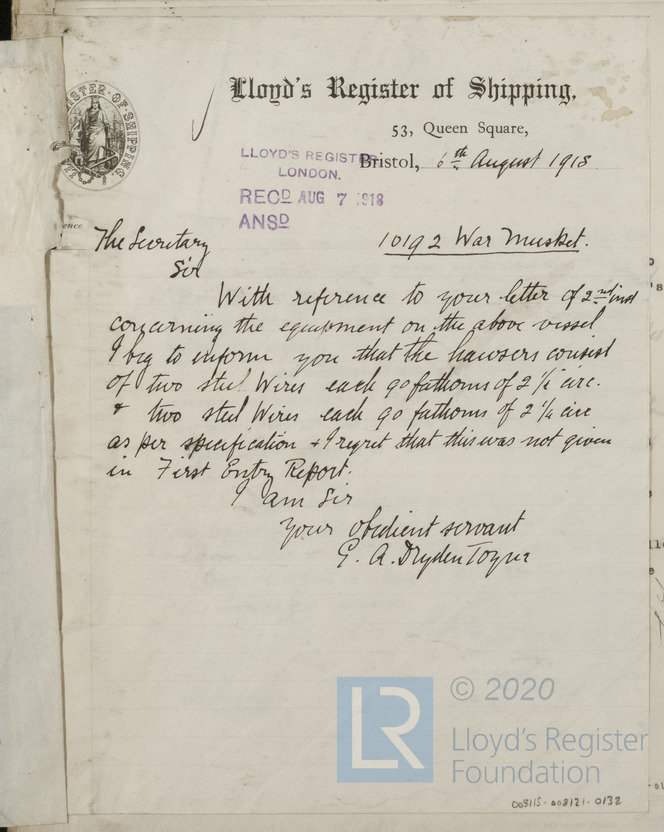 Lloyd's Register of Shipping,
53, Queen Square,
Bristol, 6th August 1918
LLOYD'S REGISTER
LONDON.
RECD AUG 7 1918
ANSD
The Secretary
10192 War Musket.
Sir
With reference to your letter of 2nd inst
concerning the equipment on the above vessel
I beg to inform you that the hawsers consist
of two steel Wires each 90 fathoms of 2 1/2 circ.
& two steel Wires each 90 fathoms of 2 1/4 circ
as per specification & I regret that this was not given
in First Entry Report.
I am Sir
your obedient servant
G. A. Dryden
© 2020
LR
Lloyd's Register
Foundation
008115-008121-0132